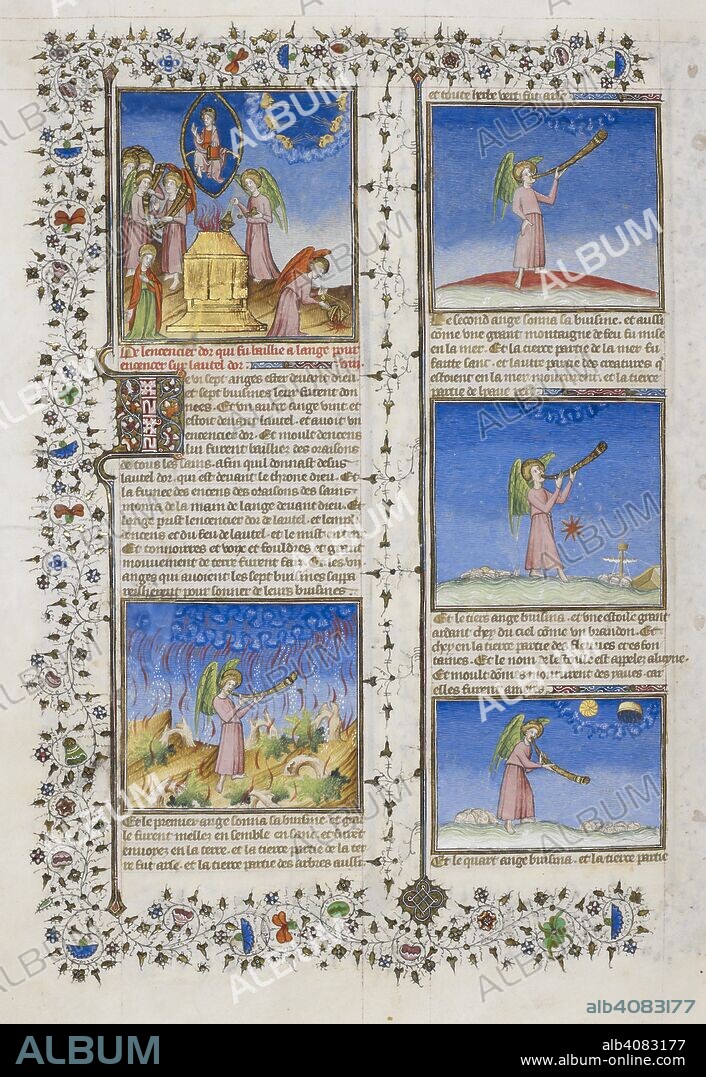 De lencencier dor qui fu baillie a lange pour
encencer sur lautel dor
vii anges ester devant dieu
et sept buisines leur furent don
nees. Et un autre ange vint et
estoit devant lautel. et avoit un
encencier dor. Et moult dencens
furent baillies des oraisons
de tous les sains. afin quil donnast desus
lautel dor. qui est devant le throne dieu. Et
la fumee des encens des oraisons des sains
monta de la main de lange devant dieu. Et
lange prist lencencier dor de lautel. et lempli
dencens et du feu de lautel. et le mist en terre
Et tonnoirres et voix et fouldres et grant
mouvement de terre furent fais. Et les vii
anges qui avoient les sept buisines sappa
reillierent pour sonner de leurs buisines.
Et le premier ange sonna sa buisine. et gra
le furent mellez en semble en sanc. et furent
envoiez en la terre. et la tierce partie de la ter
re fut arse. et la tierce partie des arbres aussi.
et toute herbe vert fut arse
Le second ange sonna sa buisine. et aussi
come une grant montaigne de feu fu mise
en la mer. Et la tierce partie de la mer fu
faitte sanc. et lautre partie des creatures q
estoient en la mer mourirent. et la tierce
partie de
Et le tiers ange buisina. et une estoille grant
ardant chey du ciel come un brandon. Et
chey en la tierce partie des fleuves et es fon
taines. Et le nom de lestoille est appelez aluyne.
Et moult domes moururent des yaues. car
elles furent ameres
Et le quart ange buisina. et la tierce partie
ALBUM
alb4083177
ALBUM
alb4083177
www.album-online.com